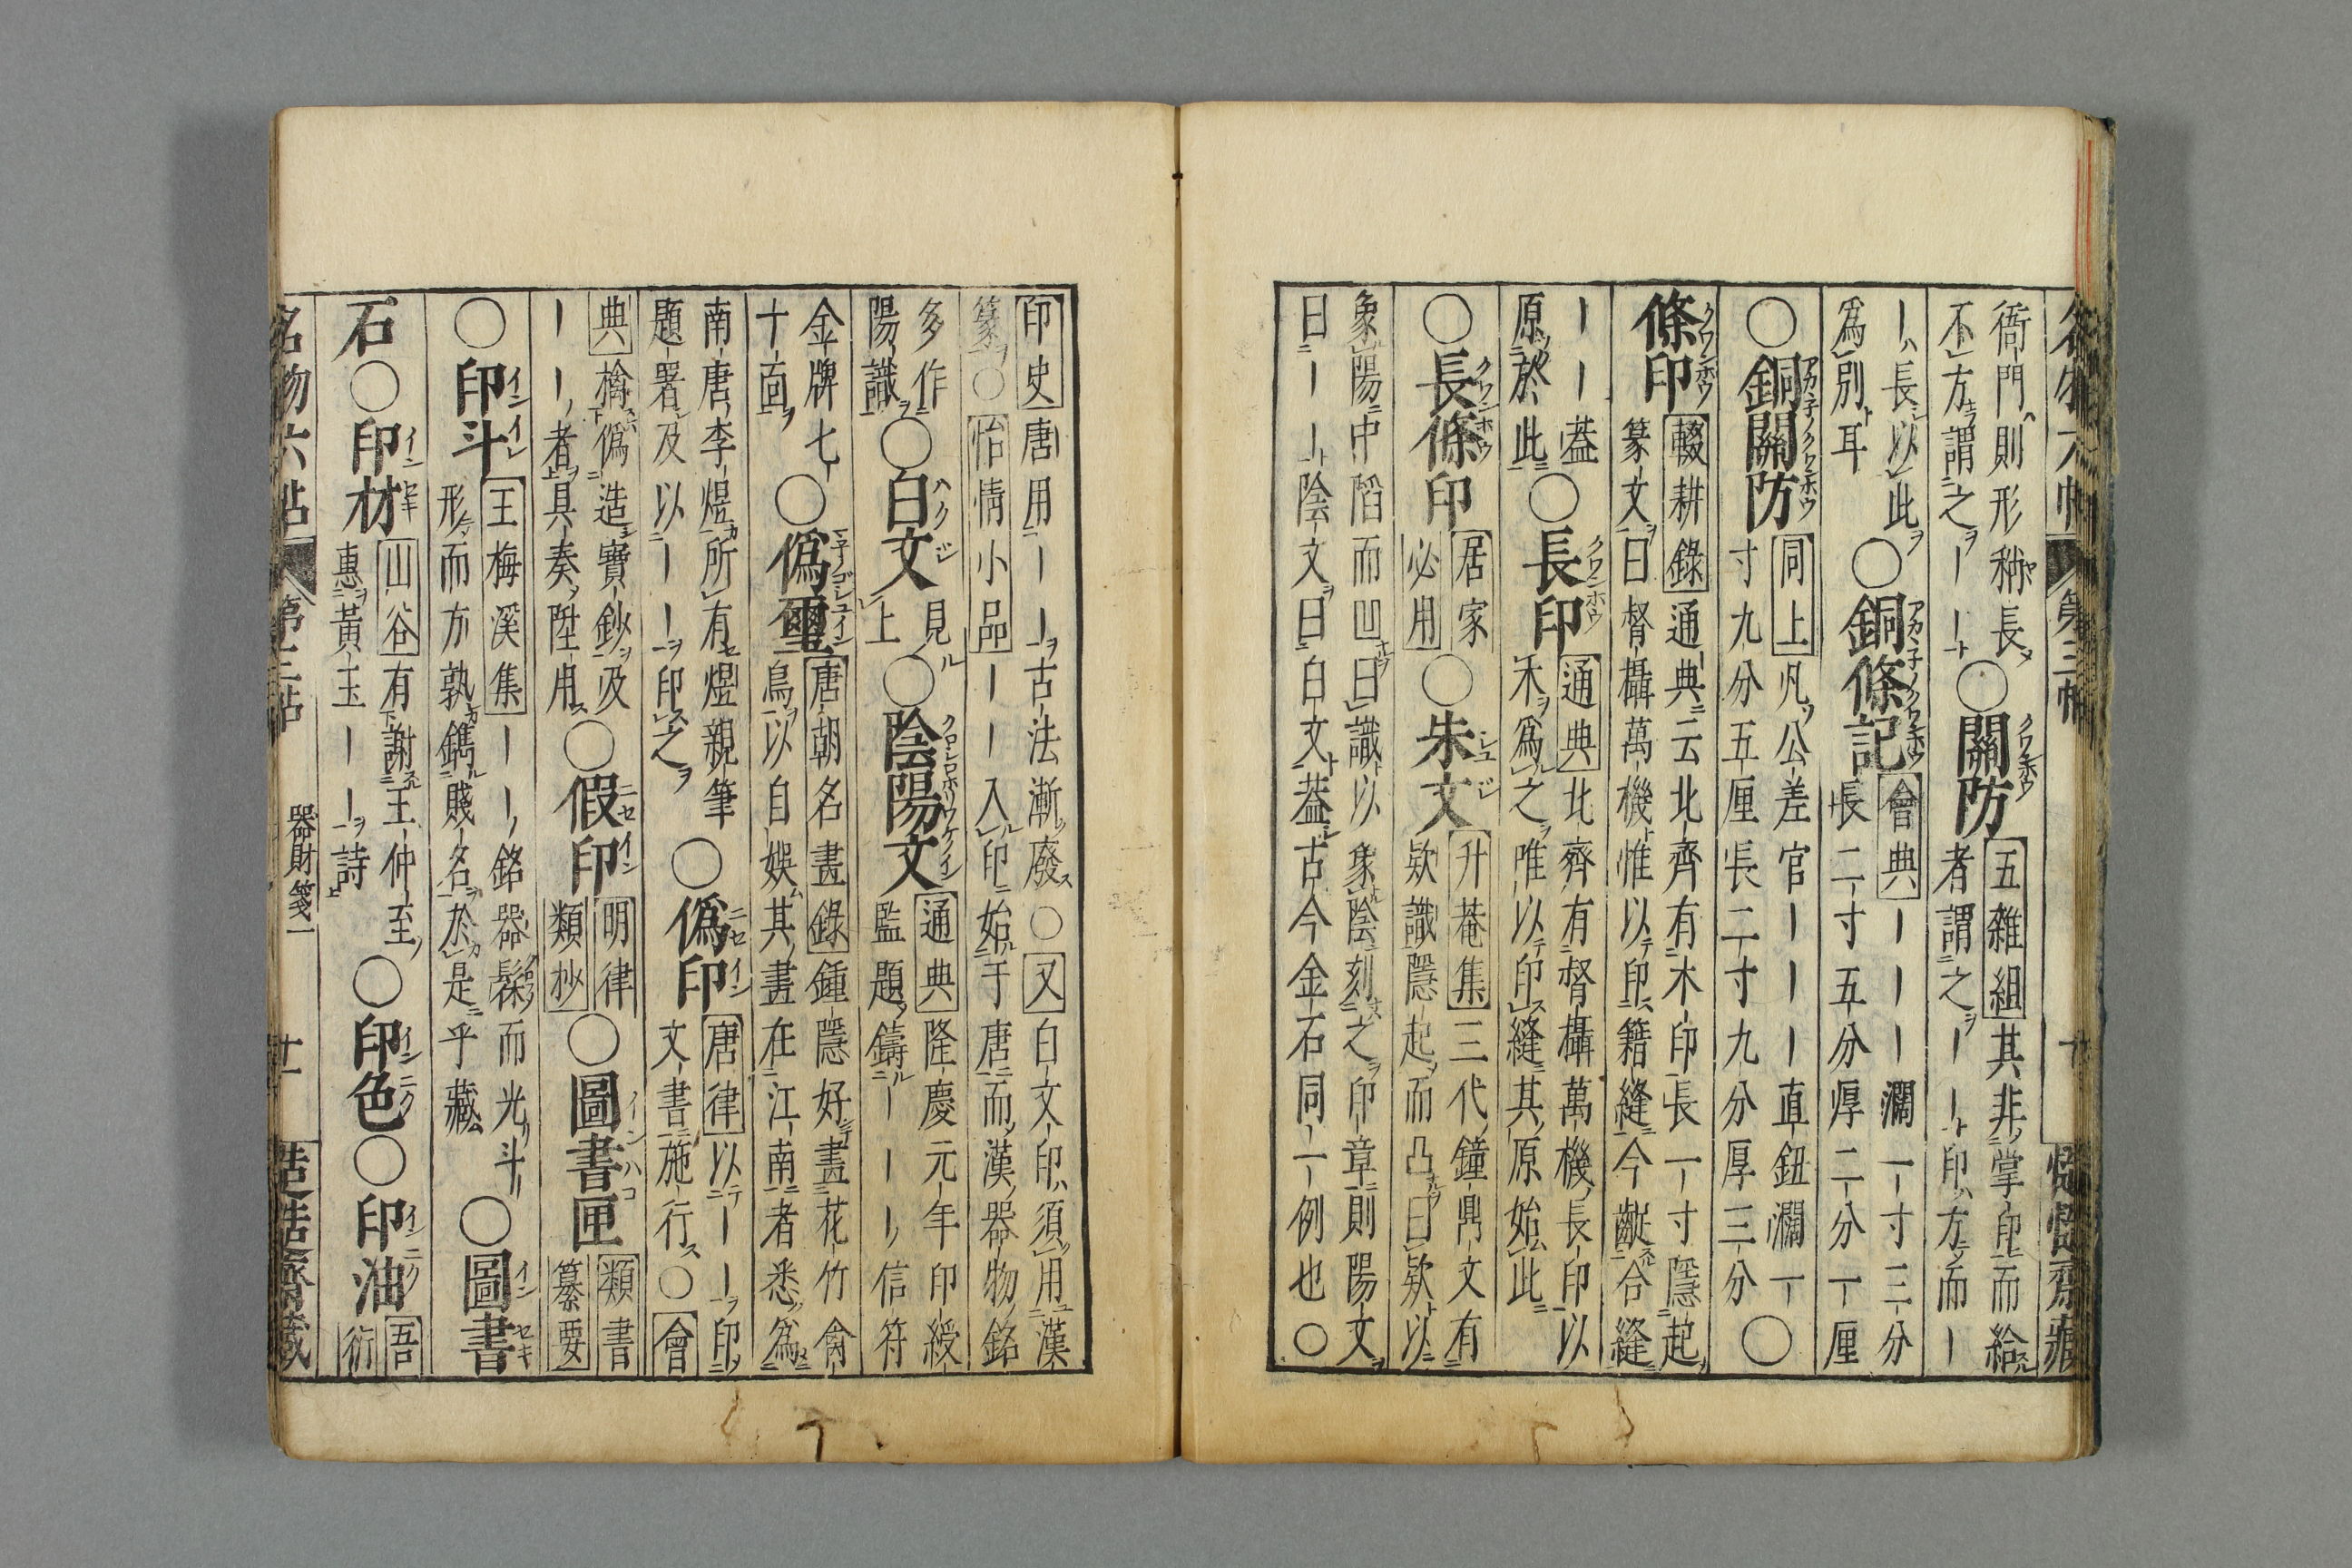 名物六帖 第三帖 十
衙門則形稍長
不方謂之ーー
〇關防
五雜組其非掌印而給
者謂之ーー印方而ー
ー長以此
爲別耳
〇銅條記
會典ーーー濶一寸三分
長二寸五分厚二分一厘
〇銅關防
同上凡公差官ーーー直鈕濶一
寸九分五厘長二寸九分厚三分
〇
條印
輟耕錄通典云北齊有木印長一寸隱起
篆文曰督攝萬機惟以印籍縫今齪合縫
ーー蓋
原於此
〇長印
通典北齊有督攝萬機長印以
木爲之唯以印縫其原始此
〇長條印
居家
必用
〇朱文
升菴集三代鐘鼎文有
欵識隱起而凸曰欵以
象陽中陷而凹曰識以象陰刻之印章則陽文
曰ーー陰文曰白文蓋古今金石同一例也〇
印史唐用ーー古法漸廢〇又白文印須用漢
篆〇怡情小品ーー入印始于唐而漢器物銘
多作
陽識
〇白文
見
上
〇陰陽文
通典隆慶元年印綬
監題鑄ーーー信符
金牌七
十面
〇僞璽
唐朝名畫錄鍾隱好畫花竹禽
鳥以自娯其畫在江南者悉爲
南唐李煜所有煜親筆
題署及以ーー印之
〇僞印
唐律以ーー印
文書施行〇會
典檎僞造寶鈔及
ーー者具奏陞用
〇假印
明律
類抄
〇圖書匣
類書
纂要
〇印斗
王梅溪集ーー銘器髹而光斗
形而方孰鐫賤名於是乎藏
〇圖書
石〇印材
山谷有謝王仲至
惠黃玉ーー詩
〇印色〇印油
吾
衍
名物六帖 第三帖 器財箋一 十一